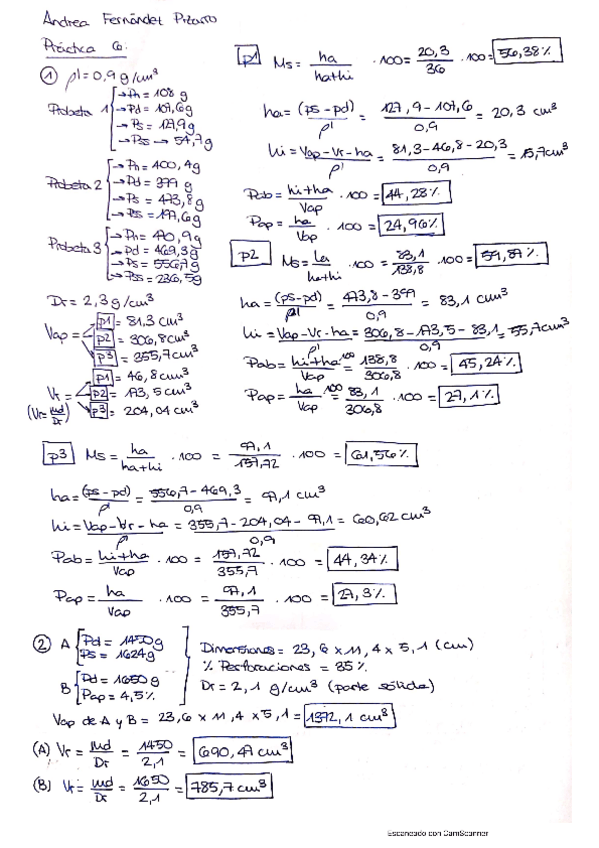 Andrea Fernández Pizarro
Práctica 6:
① ρl = 0,9 g/cm³
Probeta 1
→ Ph = 108 g
→ Pd = 109,6 g
→ Ps = 127,9 g
→ Pss → 54,7 g
Probeta 2
→ Ph = 400,4 g
→ Pd = 399 g
→ Ps = 473,8 g
→ Pss = 197,6 g
Probeta 3
→ Ph = 470,9 g
→ Pd = 469,3 g
→ Ps = 556,7 g
→ Pss = 236,5 g
Dr = 2,3 g/cm³
Vap =
p1 = 81,3 cm³
p2 = 306,8 cm³
p3 = 355,7 cm³
Vr = (Vr = Md/Dr)
p1 = 46,8 cm³
p2 = 173,5 cm³
p3 = 204,04 cm³
p1 Ms = ha/(ha+hi) · 100 = 20,3/36 · 100 = 56,38%
ha = (ps-pd)/ρl = (127,9 - 109,6)/0,9 = 20,3 cm³
hi = Vap - Vr - ha/ρ = 81,3 - 46,8 - 20,3/0,9 = 15,7 cm³
Pab = (hi+ha)/Vap · 100 = 44,28%
Pap = ha/Vap · 100 = 24,96%
p2 Ms = ha/(ha+hi) · 100 = 83,1/138,8 · 100 = 59,87%
ha = (ps-pd)/ρl = (473,8 - 399)/0,9 = 83,1 cm³
hi = Vap - Vr - ha/ρ = 306,8 - 173,5 - 83,1/0,9 = 55,7 cm³
Pab = (hi+ha)/Vap · 100 = 138,8/306,8 · 100 = 45,24%
Pap = ha/Vap · 100 = 83,1/306,8 · 100 = 27,1%
p3 Ms = ha/(ha+hi) · 100 = 97,1/157,72 · 100 = 61,56%
ha = (ps-pd)/ρ = (556,7 - 469,3)/0,9 = 97,1 cm³
hi = Vap - Vr - ha/ρ = 355,7 - 204,04 - 97,1/0,9 = 60,62 cm³
Pab = (hi+ha)/Vap · 100 = 157,72/355,7 · 100 = 44,34%
Pap = ha/Vap · 100 = 97,1/355,7 · 100 = 27,3%
② A Pd = 1450 g
Ps = 1624 g
B Pd = 1650 g
Pap = 4,5%
Dimensiones = 23,6 x 11,4 x 5,1 (cm)
% Perforaciones = 35%
Dr = 2,1 g/cm³ (parte sólida)
Vap de A y B = 23,6 x 11,4 x 5,1 = 1372,1 cm³
(A) Vr = Md/Dr = 1450/2,1 = 690,47 cm³
(B) Vr = Md/Dr = 1650/2,1 = 785,7 cm³
Escaneado con CamScanner